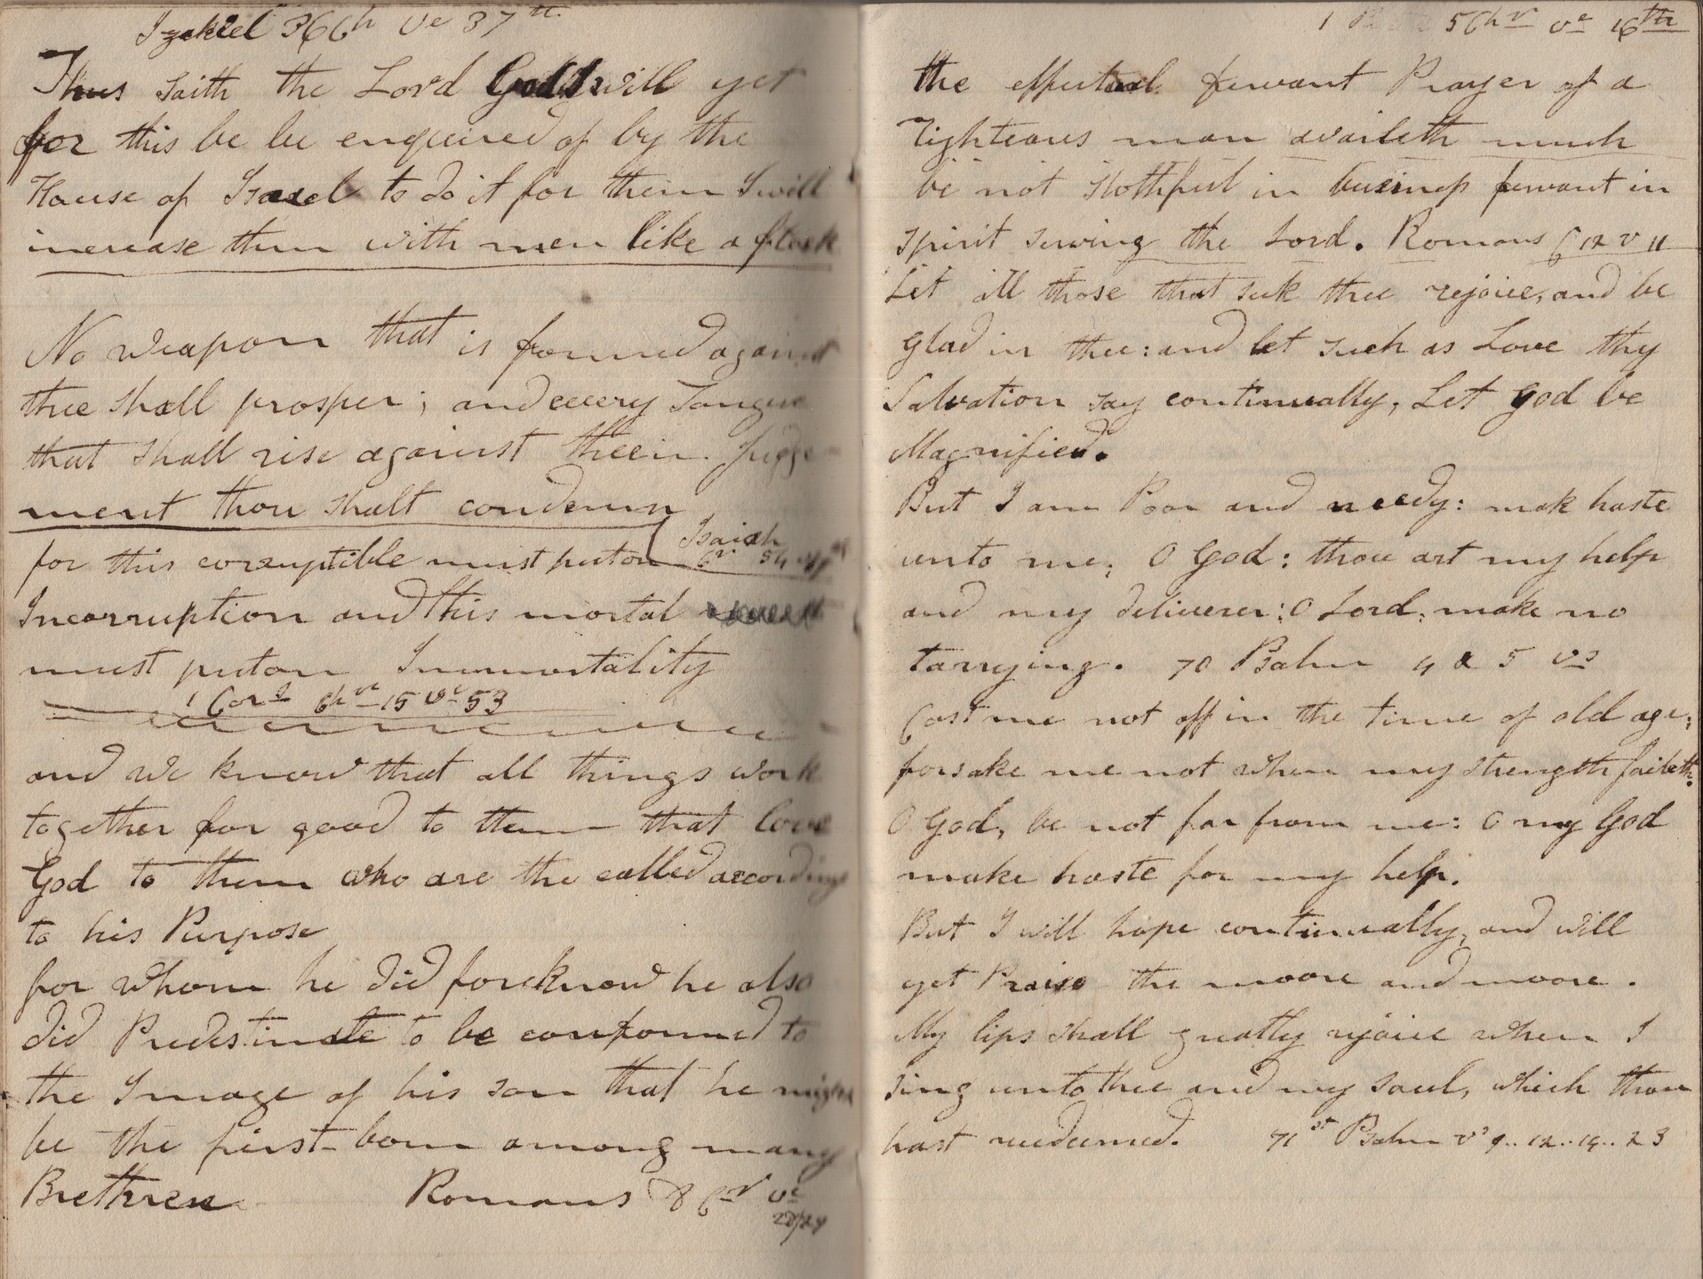 Izekiel 36 Ch Ve 37th
Thus saith the Lord God I will yet
for this be be enquired of by the
House of Israel to do it for them I will
increase them with men like a flock
No weapon that is formed against
thee shall prosper; and every Tongue
that shall rise against thee in Judge
ment thou shalt condemn
Isaiah
for this corruptible must puton Cr 54
Incorruption and this mortal
must puton Immortality
1 Cors Chr 15 Ve 53
and we know that all things work
together for good to them that love
God to them who are the called according
to his Purpose
for whom he did foreknow he also
did Predestinate to be conformed to
the Image of his son that he might
be the first born among many
Brethren Romans 8 Cr Ve
28/29
1 5 Chr Ve 16th
the effectual fervant Prayer of a
righteous man availeth much
be not slothful in business fervant in
spirit serving the Lord. Romans C 12 V 11
Let all those that seek thee rejoice, and be
Glad in thee: and let such as Love thy
Salvation say continually, Let God be
Magnified.
But I am Poor and needy: mak haste
unto me; O God: thou art my help
and my deliverer: O Lord; make no
tarrying. 70 Psalm 4 & 5 Vs
Cast me not off in the time of old age;
forsake me not when my strength faileth.
O God, be not far from me: O my God
make haste for my help.
But I will hope continually, and will
yet Praise the moore and moore.
My lips shall greatly rejoice when I
sing unto thee and my soul, which thou
hast redeemed. 71st Psalm Vs 9..12..14..23